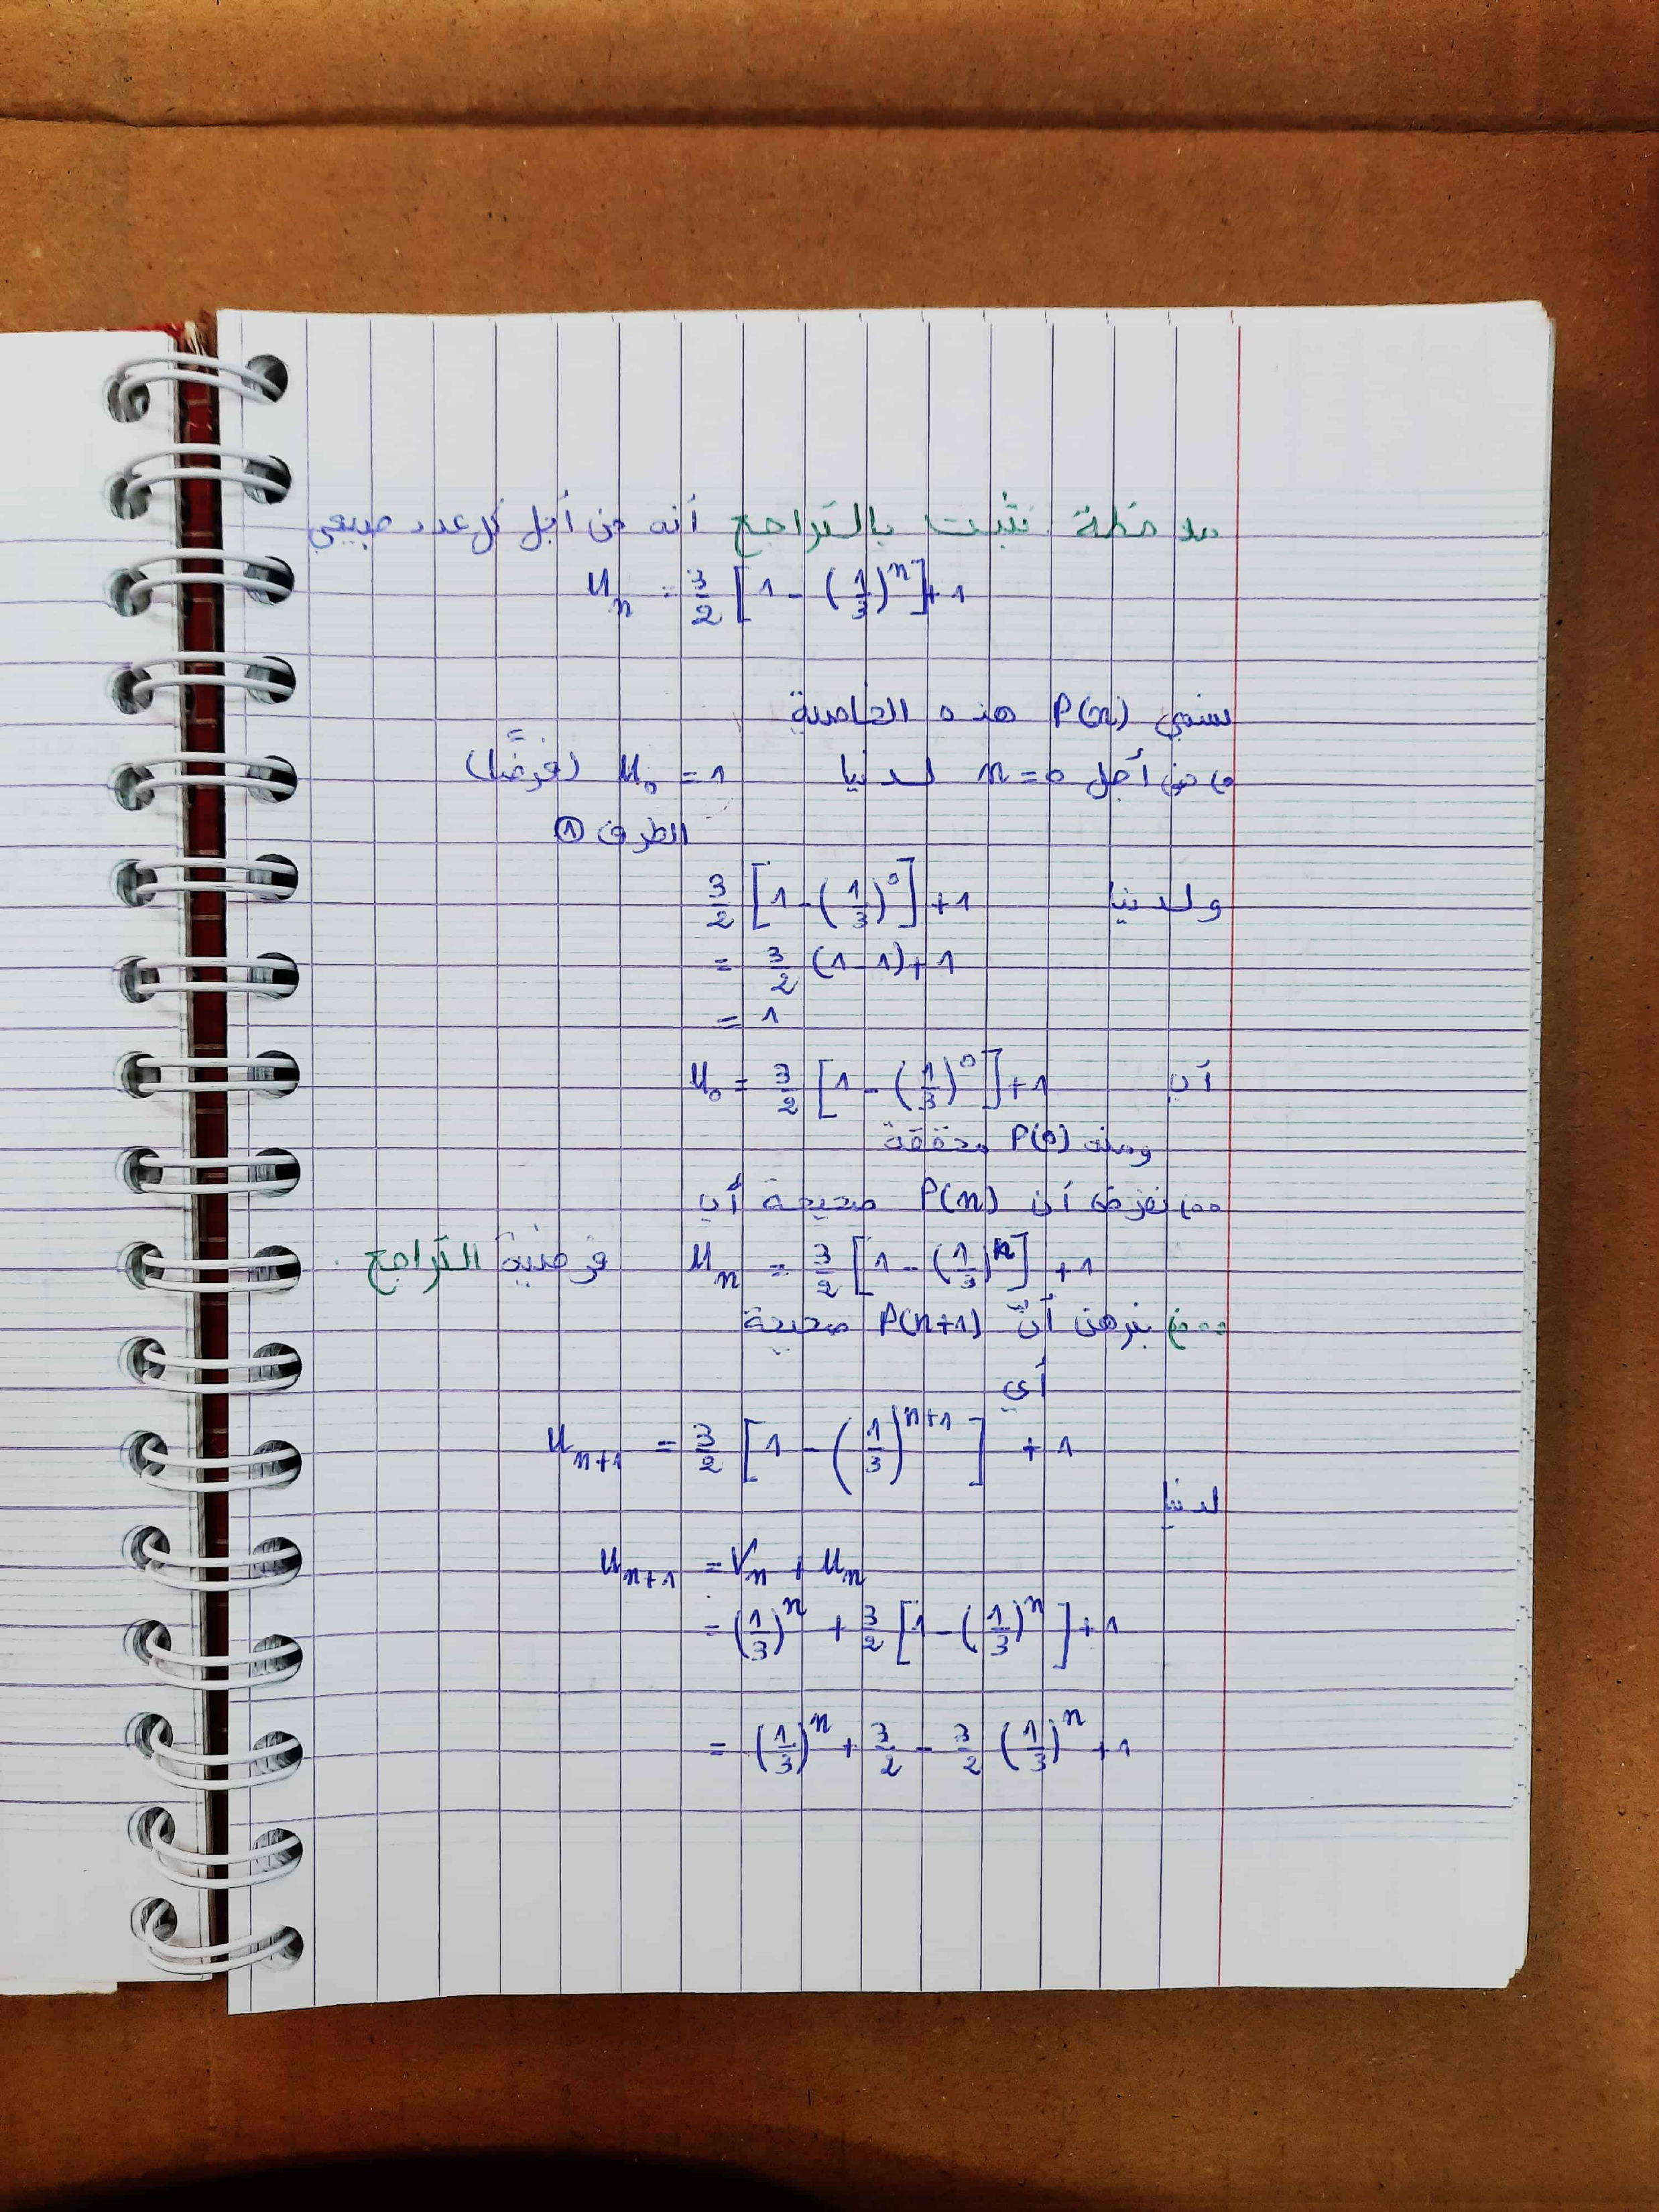 ملاحظة نثبت بالتراجع أنه من أجل كل عدد طبيعي
U_n = 3/2 [1 - (1/3)^n] + 1
نسمي P(n) هذه الخاصية
من أجل n = 0 لدينا U_0 = 1 (فرضًا)
الطرف ①
ولدينا 3/2 [1 - (1/3)^0] + 1
= 3/2 (1 - 1) + 1
= 1
أي U_0 = 3/2 [1 - (1/3)^0] + 1
ومنه P(0) محققة
نفرض أن P(n) صحيحة أي
U_n = 3/2 [1 - (1/3)^n] + 1 فرضية التراجع
نبرهن أنّ P(n+1) صحيحة
أي
U_{n+1} = 3/2 [1 - (1/3)^{n+1}] + 1
لدينا
U_{n+1} = V_n + U_n
= (1/3)^n + 3/2 [1 - (1/3)^n] + 1
= (1/3)^n + 3/2 - 3/2 (1/3)^n + 1